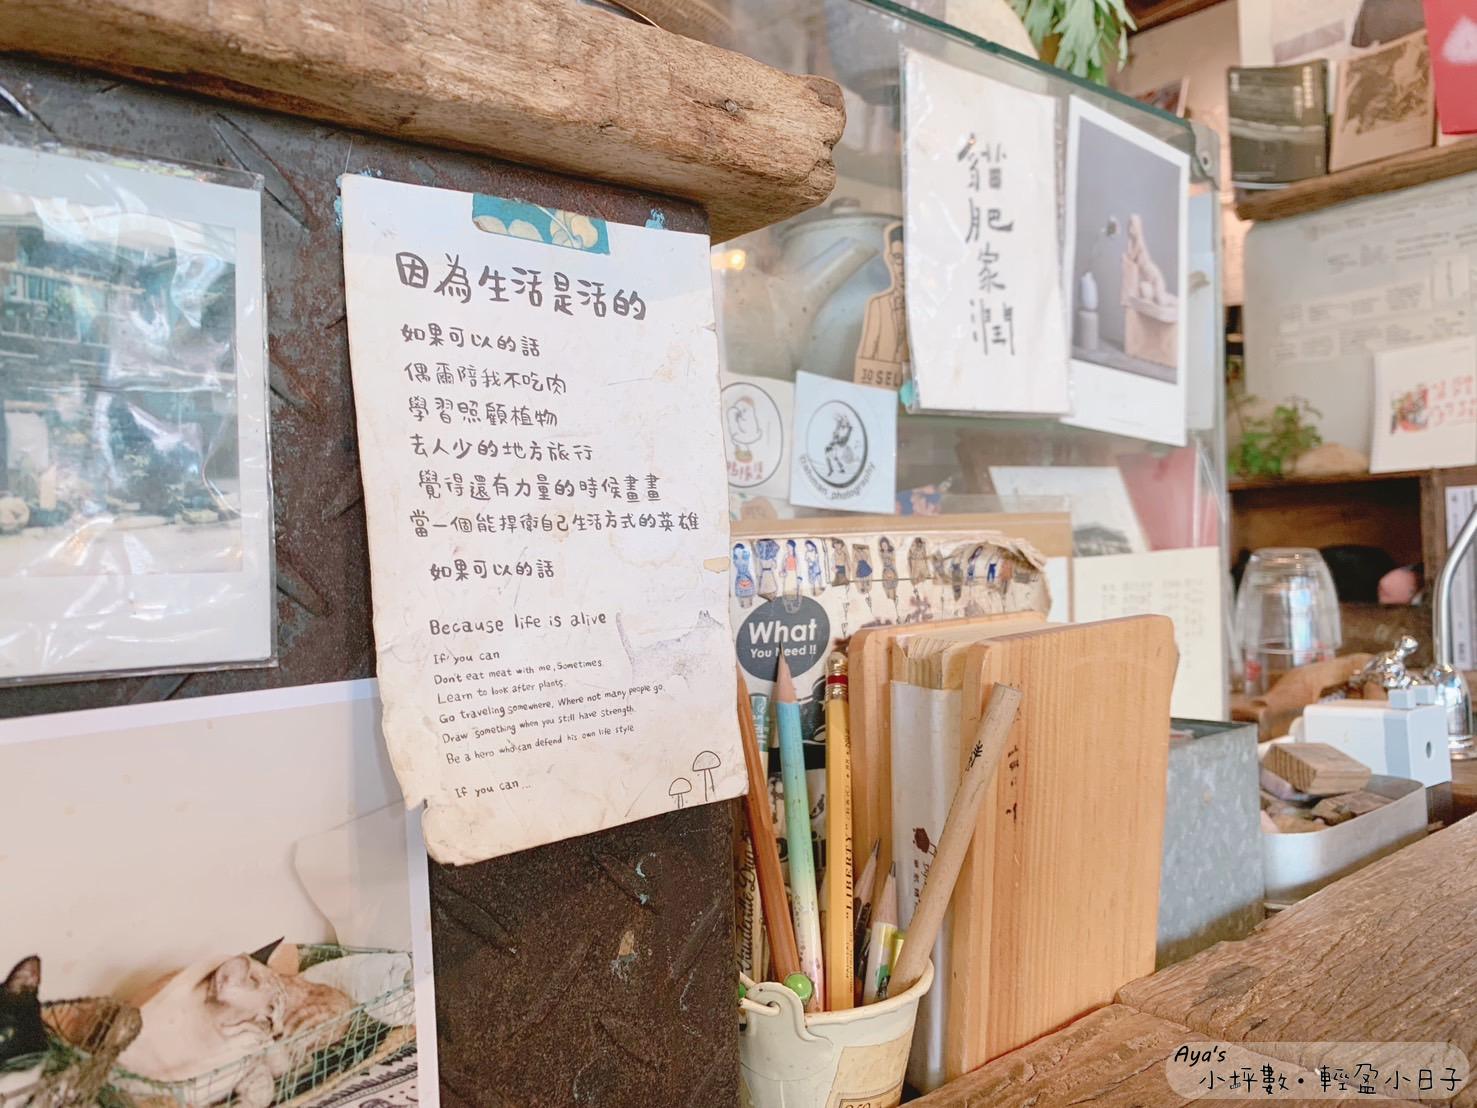 因為生活是活的
如果可以的話
偶爾陪我不吃肉
學習照顧植物
去人少的地方旅行
覺得還有力量的時候畫畫
當一個能捍衛自己生活方式的英雄
如果可以的話
Because life is alive
If you can
Don't eat meat with me, Sometimes.
Learn to look after plants.
Go traveling somewhere, Where not many people go.
Draw something when you still have strength.
Be a hero who can defend his own life style
If you can...
貓肥家潤
What
You Need !!
Aya's
小坪數·輕盈小日子